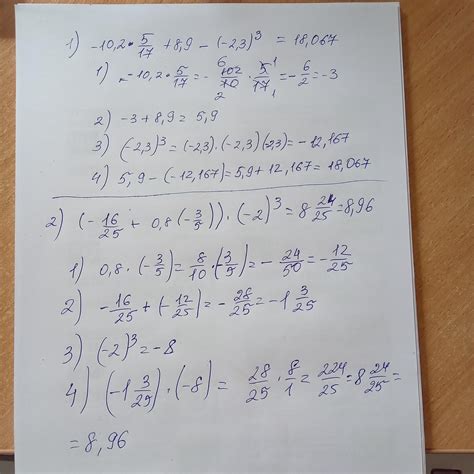 1) -10,2 · 5/17 + 8,9 - (-2,3)³ = 18,067
1) -10,2 · 5/17 = - 102/10 · 5/17 = - 6/2 = -3
6 1
2 1
2) -3 + 8,9 = 5,9
3) (-2,3)³ = (-2,3) · (-2,3)(-2,3) = -12,167
4) 5,9 - (-12,167) = 5,9 + 12,167 = 18,067
2) (- 16/25 + 0,8 (- 3/5)) · (-2)³ = 8 24/25 = 8,96
1) 0,8 · (- 3/5) = 8/10 · (- 3/5) = - 24/50 = - 12/25
2) - 16/25 + (- 12/25) = - 28/25 = -1 3/25
3) (-2)³ = -8
4) (-1 3/25) · (-8) = 28/25 · 8/1 = 224/25 = 8 24/25 =
= 8,96